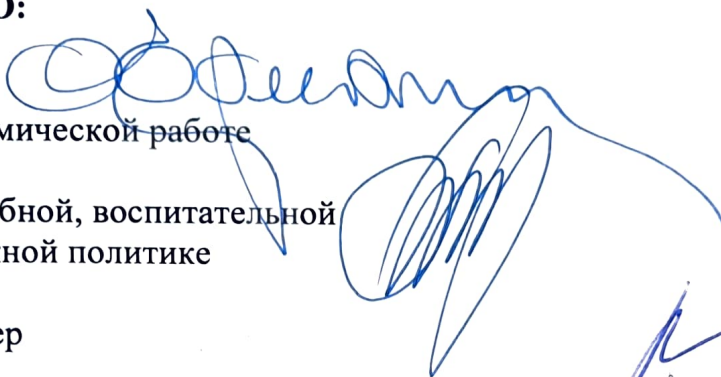 О:
мической работе
бной, воспитательной
ной политике
ер